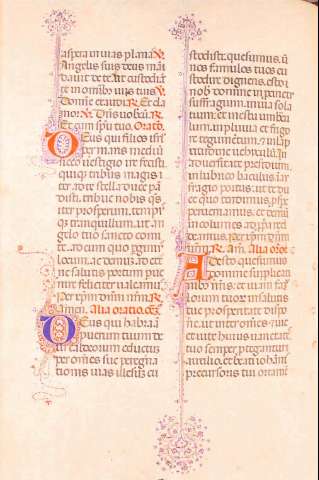 aspera in vias planas. V.
Angelis suis deus man
davit de te. Ut custodiāt
te in omnibus viis tuis. V.
Domine exaudi. R. Et cla
mor. V. Dns vobcū. R.
Et cum spū tuo. Oratio.
Deus qui filios isrl
per maris mediū
sicco vestigio ire fecisti.
quiq; tribus magis i
ter ad te stella duce pā
disti. tribue nobis qs
iter prosperum. temp;
q; tranquillum. ut an
gelo tuo sancto comi
te. ad eum quo pgimꝰ
locum. ac demum ad eter
ne salutis portum pue
nire feliciter valeamus.
Per xpm dnm nrm. R.
Amen. Alia oratio.
Deus qui habraā
puerum tuum de
ur caldeorum eductū.
per omes sue peregina
tionis vias illesum cu
stodisti. quesumus. ut
nos famulos tuos cu
stodire digneris. esto no
bis domine in procictu
suffragium. in via sola
tium. in estu umbracu
lum. in pluvia et frigo
re tegumentum. in lassi
tudine vehiculum. In
adversitate presidium.
in lubrico baculus. in nau
fragio portus. ut te du
ce quo tendimus. pspe
re perveniamus. et demū
incolumes ad ppria re
deamus. Per xpm dnm
nrm. R. Am. Alia oro.
Adesto quesumus
domine supplicati
onibus nris. et viam fa
morum tuorum in salutis
tue prosperitate dispo
ne. ut inter omes vie et
vite huius varietates
tuo semper protegantur
auxilio. et beati iohānis
precursoris tui oramen